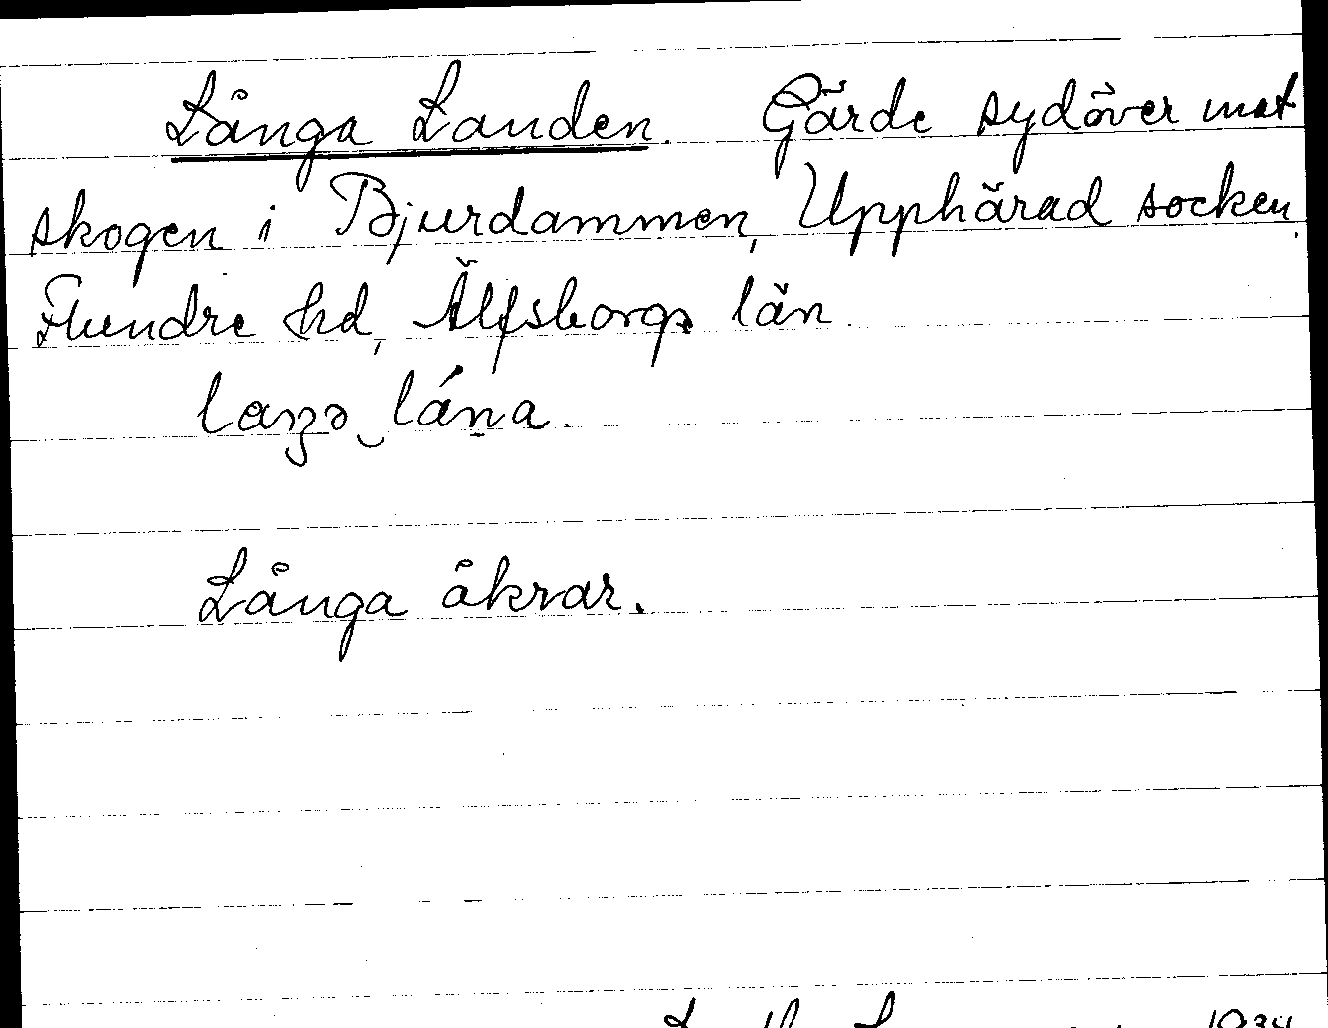 Långa Landen. Gärde sydöver mot
skogen i Bjurdammen, Upphärad socken,
Flundre hd, Älfsborgs län.
Långa åkrar.
1934